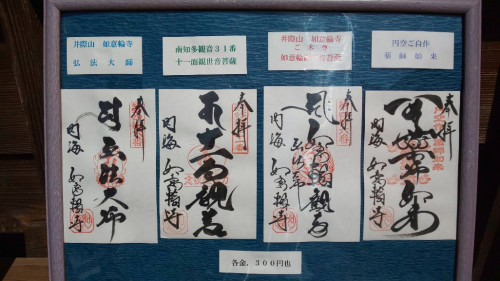 井際山 如意輪寺
弘法大師
南知多観音31番
十一面観世音菩薩
井際山 如意輪寺
ご本尊
如意輪観世音菩薩
円空ご自作
薬師如来
奉拝
弘法大師
内海 如意輪寺
奉拝
十一面観音
内海 如意輪寺
奉拝
如意輪観音
内海 如意輪寺
奉拝
内海 如意輪寺
各金、300円也